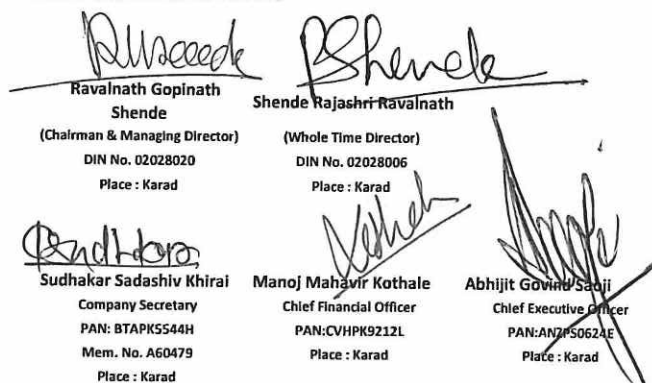 Ravalnath Gopinath
Shende
(Chairman & Managing Director)
DIN No. 02028020
Place : Karad
Shende Rajashri Ravalnath
(Whole Time Director)
DIN No. 02028006
Place : Karad
Sudhakar Sadashiv Khirai
Company Secretary
PAN: BTAPK5544H
Mem. No. A60479
Place : Karad
Manoj Mahavir Kothale
Chief Financial Officer
PAN:CVHPK9212L
Place : Karad
Abhijit Govind Saoji
Chief Executive Officer
PAN:ANZPS0624E
Place : Karad